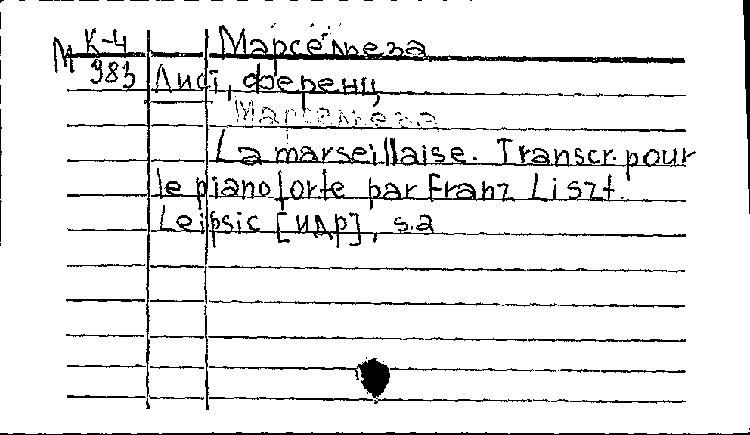 М К-4 Марсельеза
983 Лист, Ференц
Марсельеза
La marseillaise. Transcr. pour
le pianoforte par Franz Liszt
Leipsic [и др], s.a